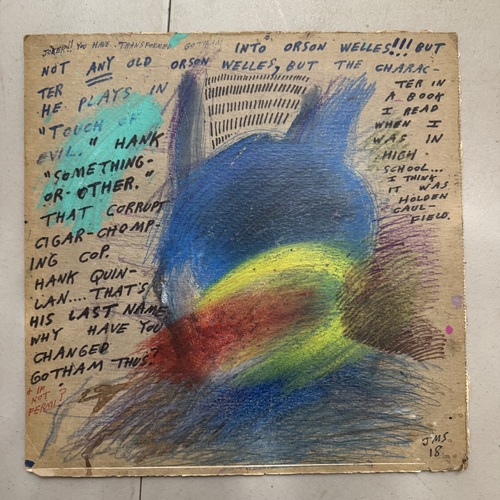 JOKER!! YOU HAVE TRANSFORMED GOTHAM INTO ORSON WELLES!!! BUT
NOT ANY OLD ORSON WELLES, BUT THE CHARAC-
TER
HE PLAYS IN
"TOUCH OF
EVIL." HANK
"SOMETHING-
OR-OTHER."
THAT CORRUPT
CIGAR-CHOMP-
ING COP.
HANK QUIN-
LAN.... THAT'S
HIS LAST NAME
WHY HAVE YOU
CHANGED
GOTHAM THUS?
+ IF
NOT
TER IN
A BOOK
I READ
WHEN I
WAS IN
HIGH
SCHOOL...
I THINK
IT WAS
HOLDEN
CAUL-
FIELD.
JMS
18